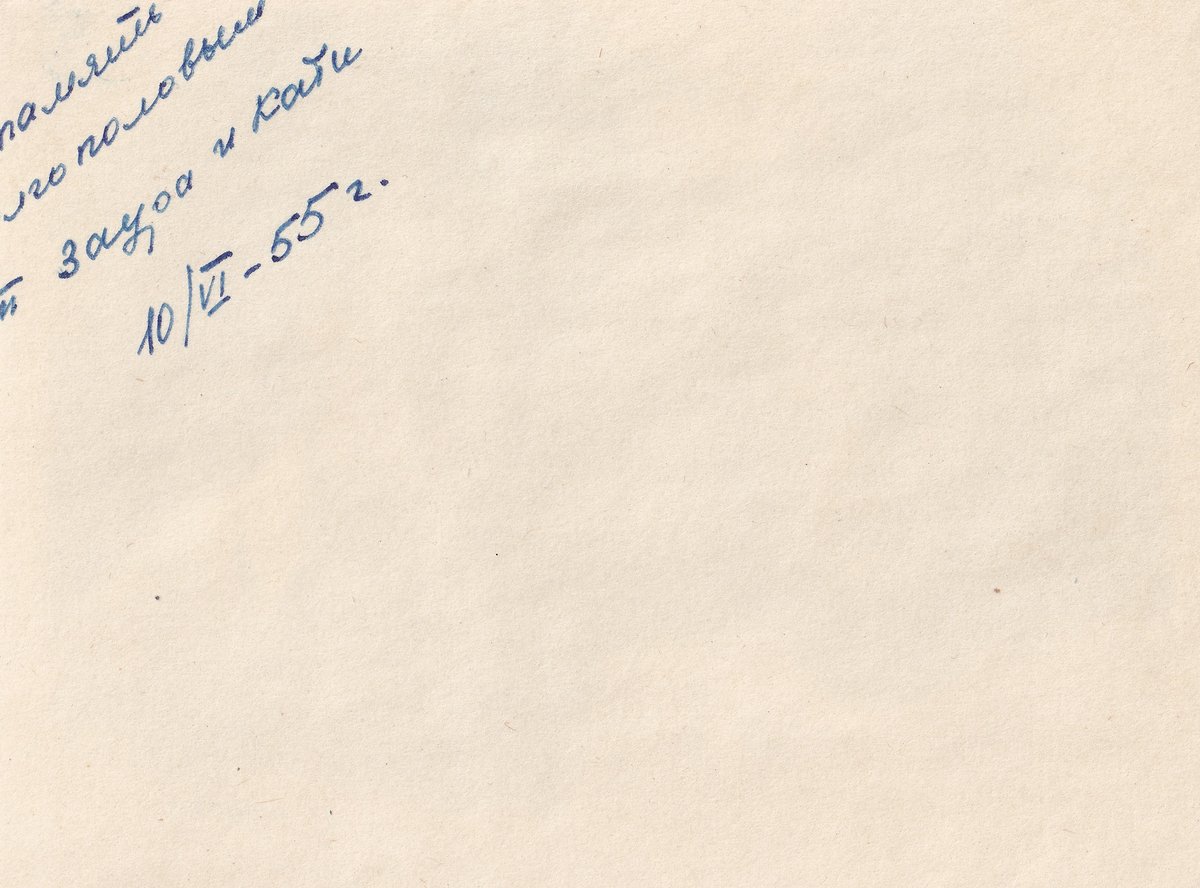 память
лгополовым
т Заура и Кати
10/VI-55 г.